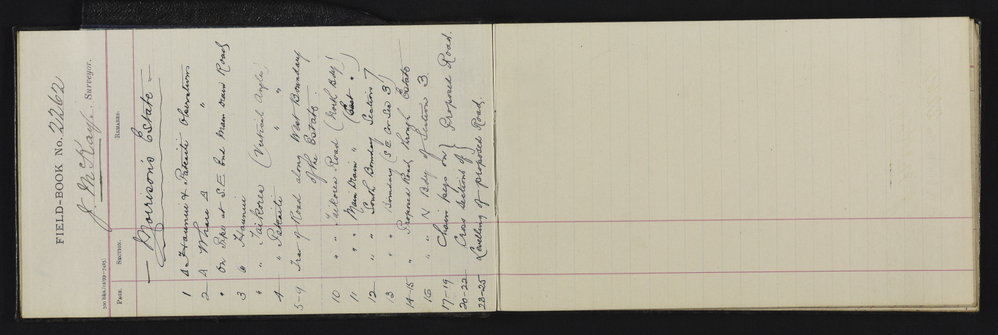 FIELD-BOOK No. 2262
J. McKay Surveyor.
500 bks./12/99—7495]
PAGE. SECTION. REMARKS.
— Morrison's Estate —
1 Δ Haumia & Pakaiti Observations
2 Δ Whare Δ "
" On Spur at S.E. End Main drain Road
3 Δ Haumia
" " (Vertical Angles)
4 " "
5-9 Trav of Road along West Boundary
of the Estate
10 " " Road (North Bdy)
11 " " Main Drain " (East " )
12 " " South Boundary Section 7
13 " " Boundary (S.E. Cor Sec 3)
14-15 " Proposed Road through Estate
16 " " N Bdy of Section 3
17-19 Chain pegs on } Proposed Road.
20-22 Cross Sections of }
23-25 Levelling of proposed Road.